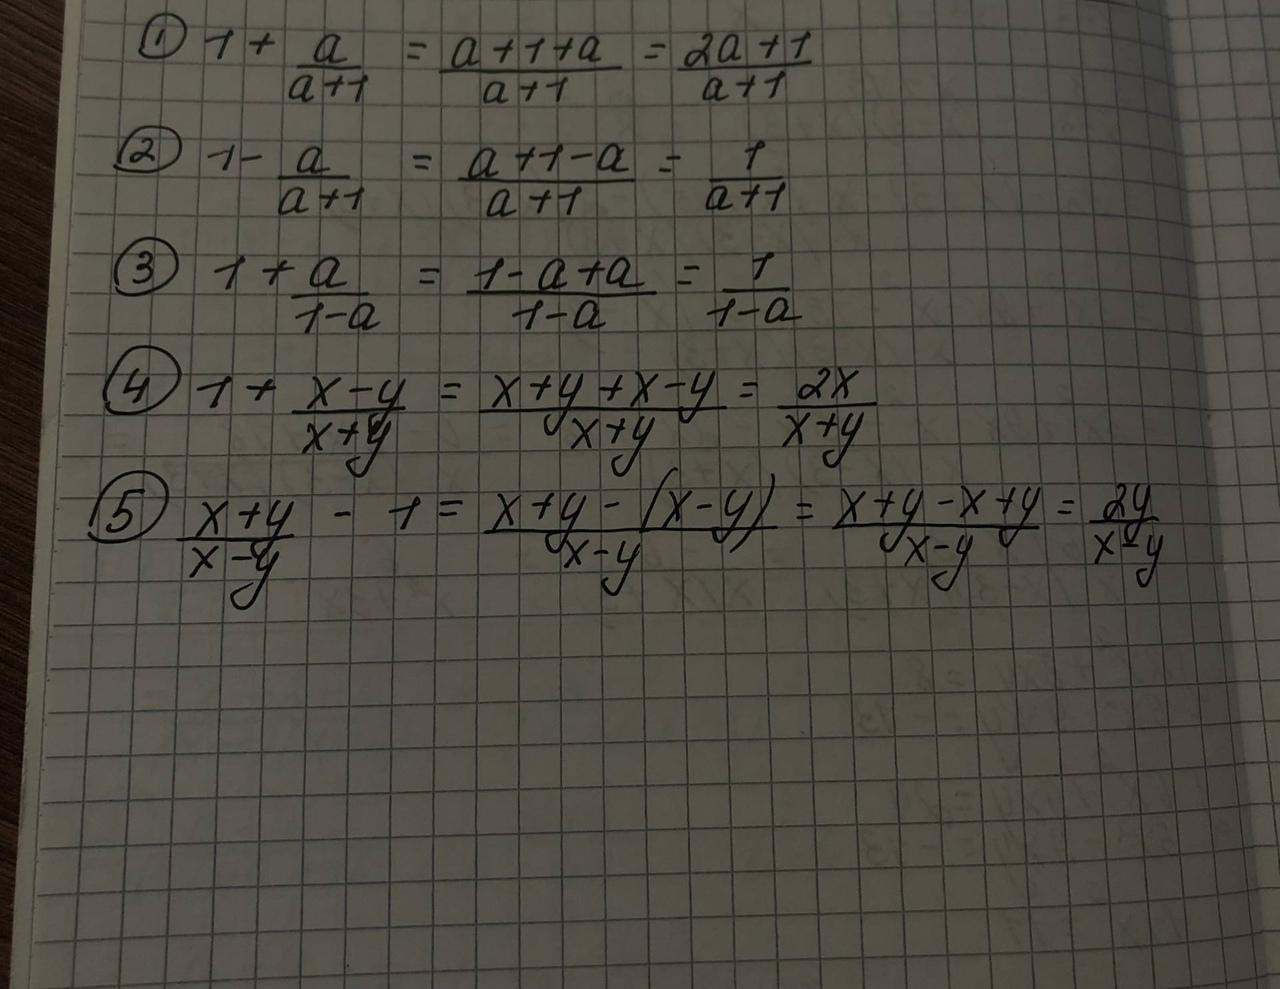 ① 1 + a/(a+1) = (a+1+a)/(a+1) = (2a+1)/(a+1)
② 1 - a/(a+1) = (a+1-a)/(a+1) = 1/(a+1)
③ 1 + a/(1-a) = (1-a+a)/(1-a) = 1/(1-a)
④ 1 + (x-y)/(x+y) = (x+y+x-y)/(x+y) = 2x/(x+y)
⑤ (x+y)/(x-y) - 1 = (x+y-(x-y))/(x-y) = (x+y-x+y)/(x-y) = 2y/(x-y)